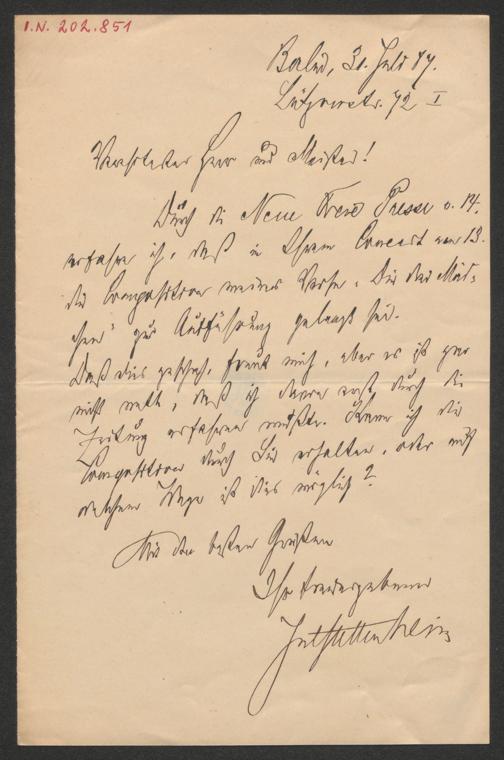 I.N. 202.851
Berlin, 31. Juli 87.
Lützowstr. 72 I
Verehrtester Herr und Meister!
Durch die Neue Freie Presse v. 14.
erfahre ich, daß in Ihrem Concert vom 13.
die Composition meiner Verse „Die drei Mäd-
chen“ zur Aufführung gelangt sei.
Daß dies geschah, freut mich, aber es ist gar
nicht nett, daß ich davon erst durch die
Zeitung erfahren mußte. Kann ich die
Composition durch Sie erhalten, oder auf
welchem Wege ist dies möglich?
Mit den besten Grüßen
Ihr treuergebener
JulStettenheim